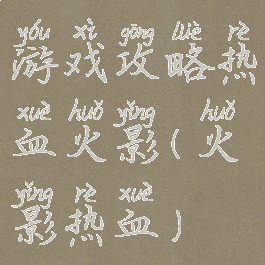 yóu xì gōng lüè rè
游戏攻略热
xuè huǒ yǐng huǒ
血火影(火
yǐng rè xuè
影热血)